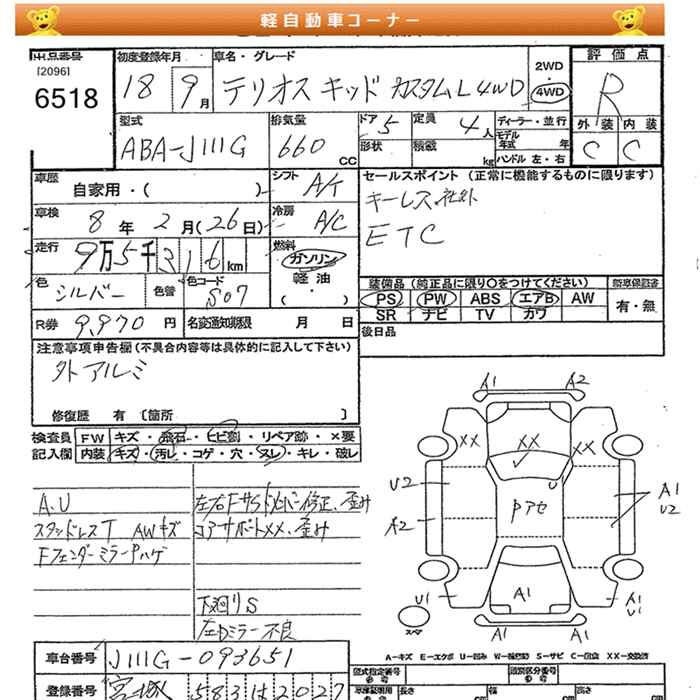 軽自動車コーナー
出品番号
[2096]
6518
初度登録年月
18 9月
車名・グレード
テリオス キッド カスタムL 4WD
2WD
4WD
評価点
R
外装 内装
C C
型式
ABA-J111G
排気量
660 CC
ドア 5
定員 4人
形状
積載 kg
ディーラー・並行
モデル年式 年
ハンドル 左・右
車歴
自家用・( )
シフト A/T
車検
8年 2月(26日)
冷房 A/C
走行
9万5千316km
燃料
ガソリン
軽油
( ・ )
色 シルバー
色替
色コード S07
R券 9,970円
名変通知期限 月 日
セールスポイント (正常に機能するものに限ります)
キーレス 社外
ETC
装備品 (純正品に限り〇をつけてください)
PS PW ABS エアB AW
SR ナビ TV カワ
新車保証書
有・無
後日品
注意事項申告欄 (不具合内容等は具体的に記入して下さい)
外アルミ
修復歴 有 〔箇所 〕
検査員記入欄
FW キズ・飛石・ヒビ割・リペア跡・×要
内装 キズ・汚レ・コゲ・穴・スレ・キレ・破レ
A.U
スタッドレスT AWキズ
Fフェンダーミラー穴ハゲ
修正、歪み
コアサポートXX、歪み
下廻りS
左Dミラー不良
A1 A2
XX XX XX
U2
A2
Pアセ
U
A1
U2
U1
A1
A1
U1
A1 A1
スペア
A-キズ E-エクボ U-凹み W-補修跡 S-サビ C-腐蝕 XX-交換済
車台番号 J111G-093651
登録番号 宮城 583 は 2027
型式指定番号
類別区分番号
長さ cm
幅 cm
高さ cm